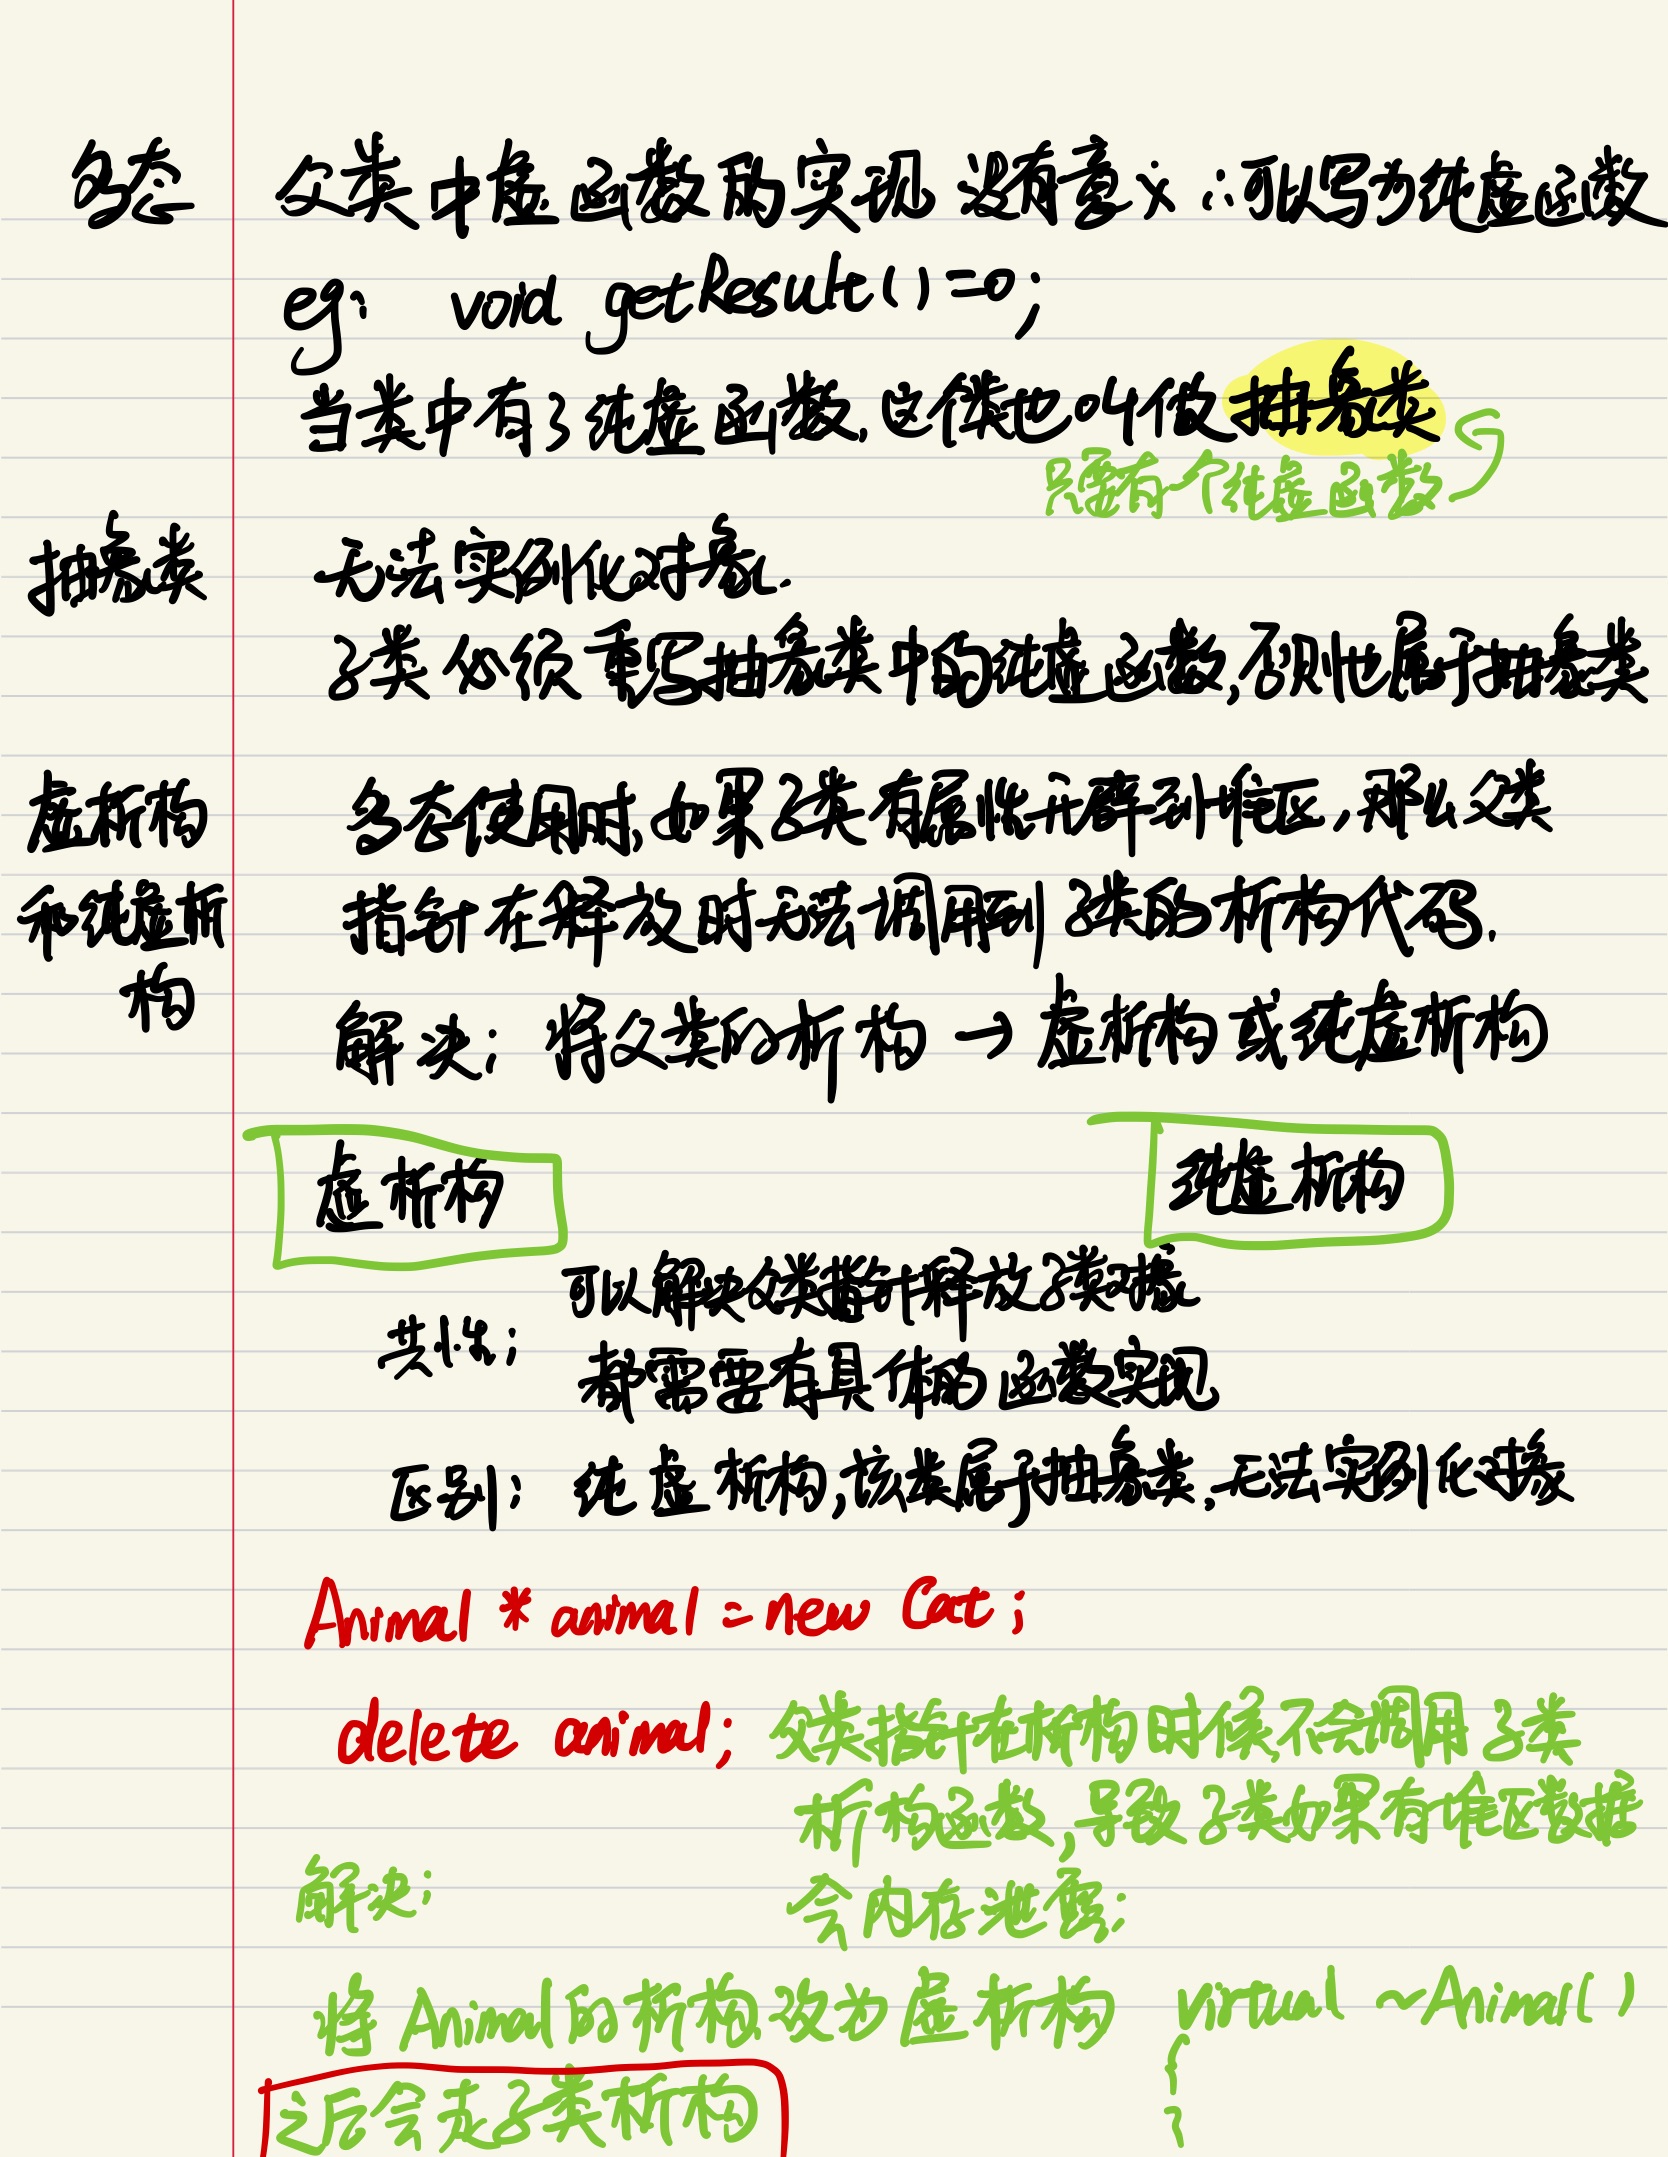 多态 父类中虚函数的实现 没有意义 ∴可以写为纯虚函数
eg: void getResult()=0;
当类中有了纯虚函数,这个类也叫做抽象类
只要有一个纯虚函数
抽象类 无法实例化对象.
子类必须重写抽象类中的纯虚函数,否则也属于抽象类
虚析构 多态使用时,如果子类有属性开辟到堆区,那么父类
和纯虚析 指针在释放时无法调用到子类的析构代码.
构
解决: 将父类的析构 → 虚析构或纯虚析构
虚析构 纯虚析构
可以解决父类指针释放子类对象
共性:
都需要有具体的函数实现
区别: 纯虚析构,该类属于抽象类,无法实例化对象
Animal * animal = new Cat;
delete animal; 父类指针在析构时候,不会调用子类
析构函数,导致子类如果有堆区数据
解决: 会内存泄露:
将Animal的析构改为虚析构 virtual ~Animal()
{
之后会走子类析构
}